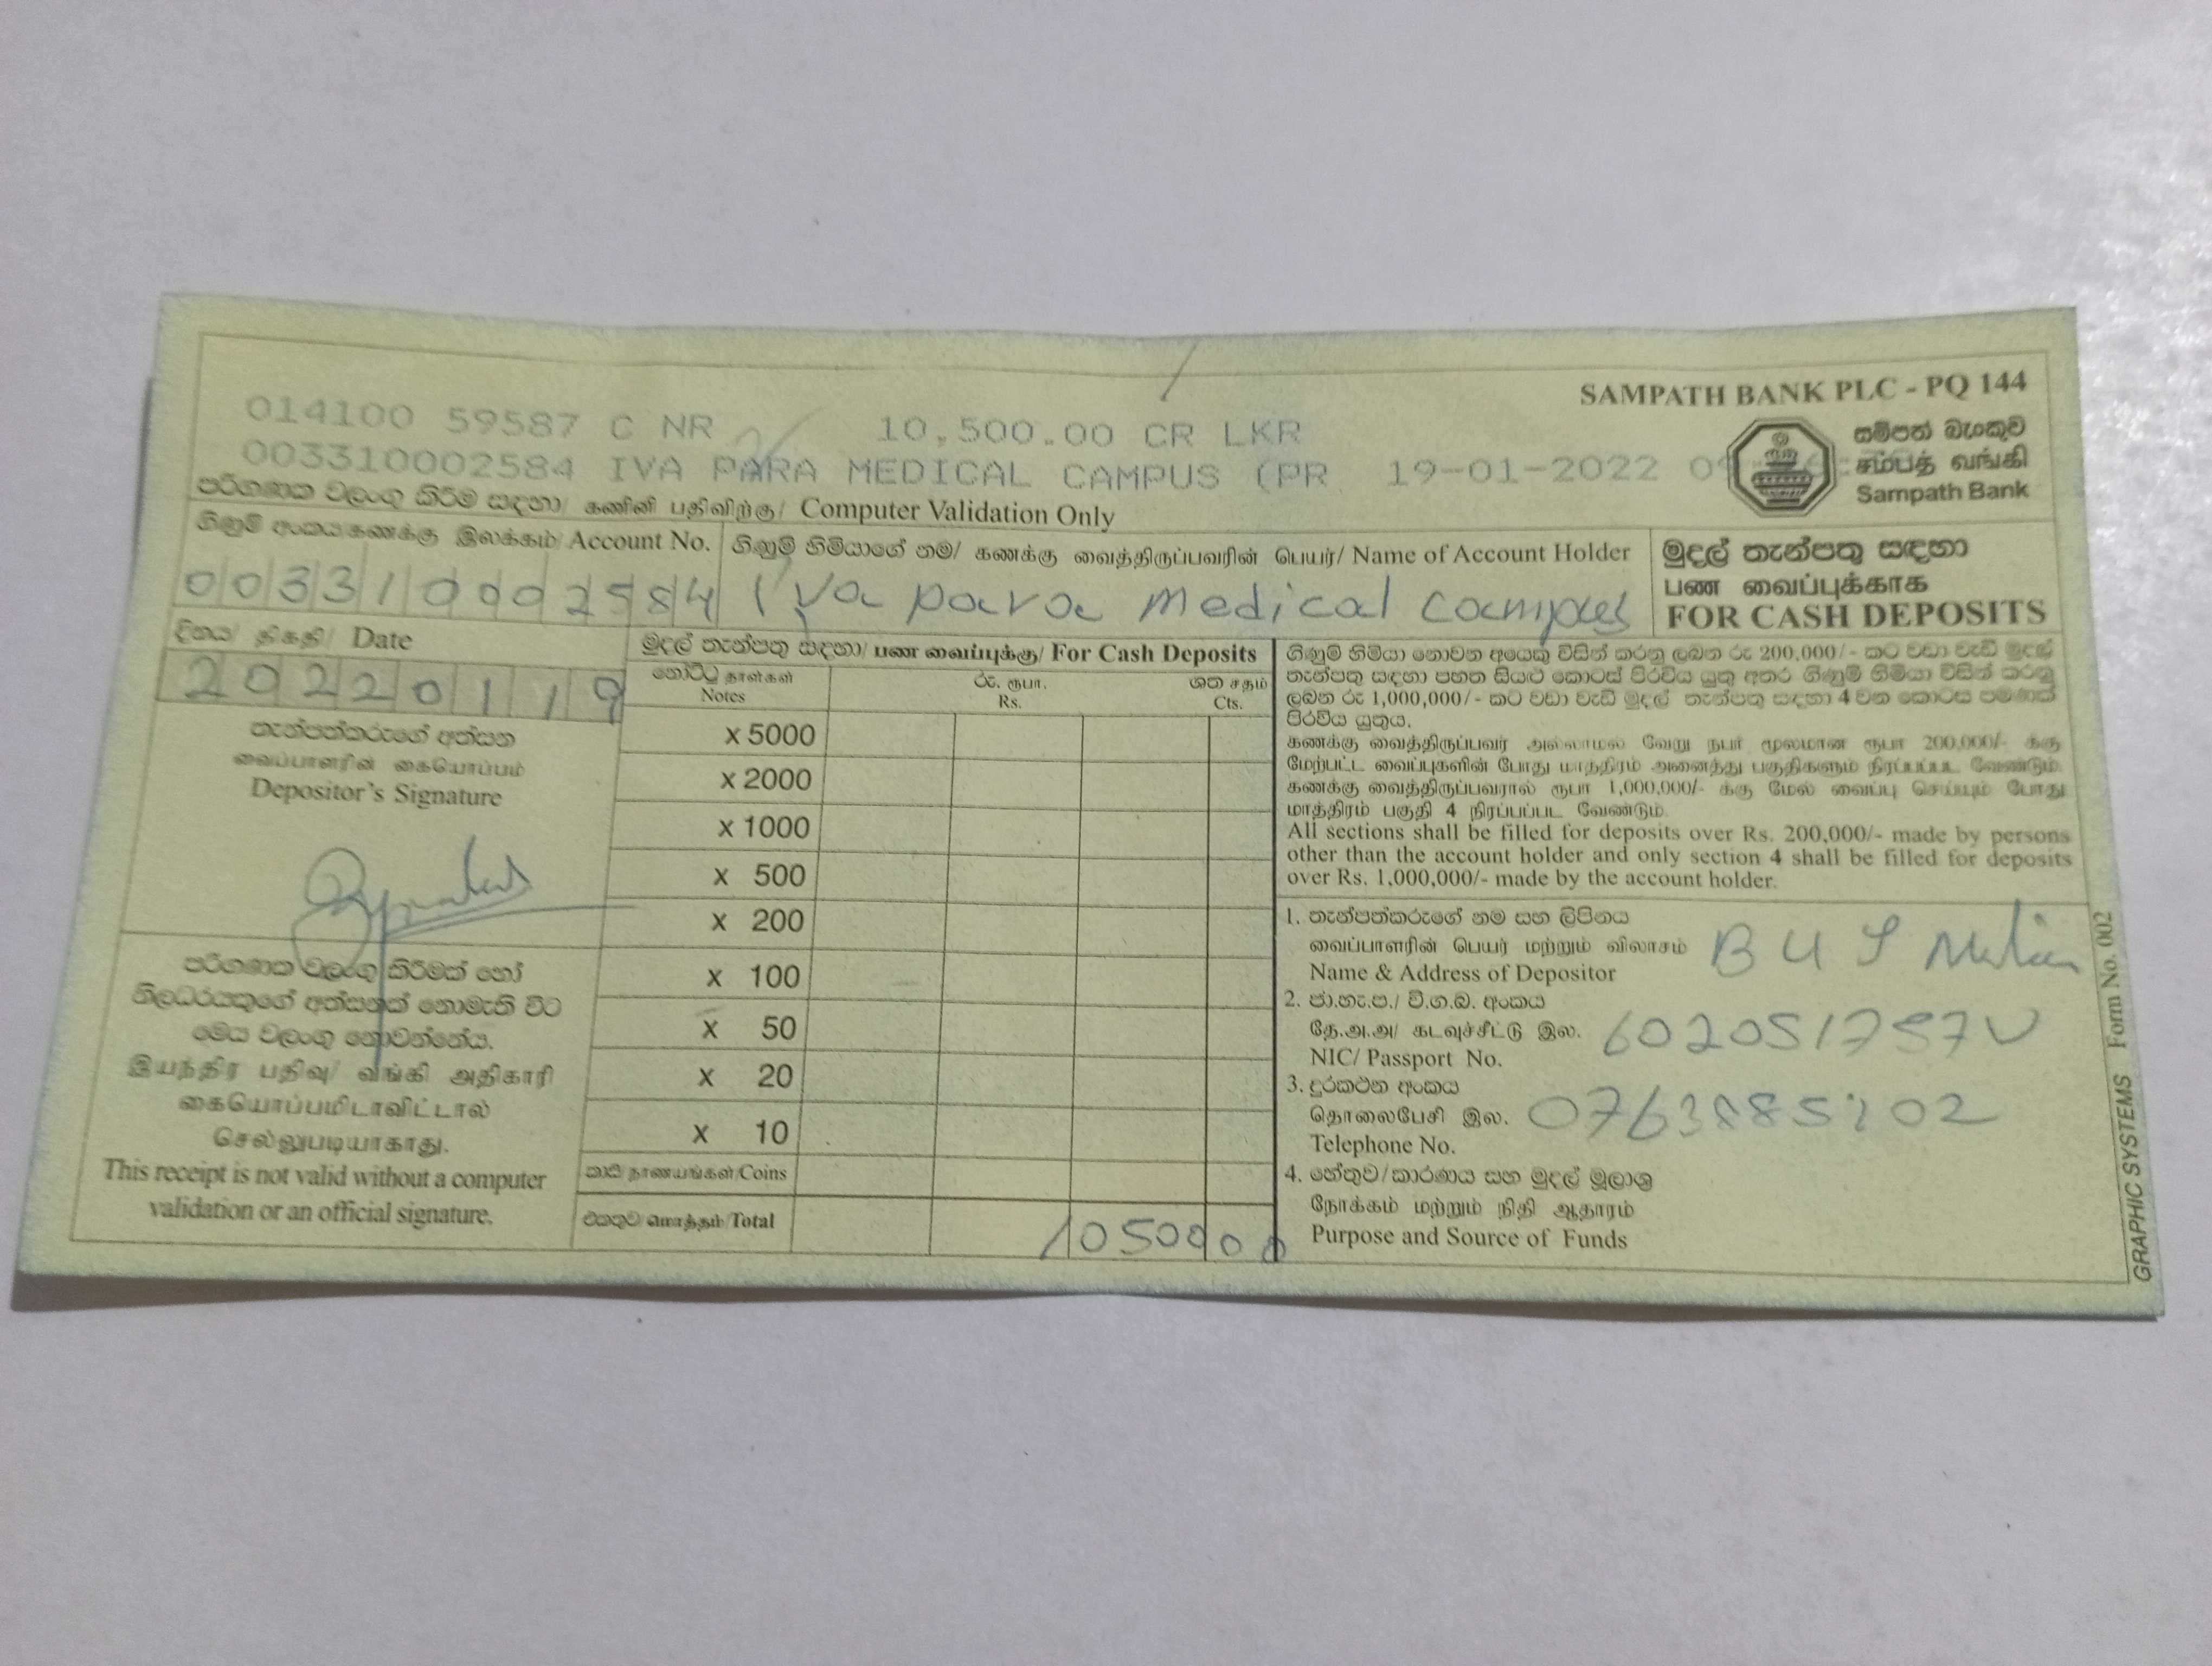 SAMPATH BANK PLC - PQ 144
014100 59587 C NR 10,500.00 CR LKR
003310002584 IVA PARA MEDICAL CAMPUS (PR 19-01-2022
සම්පත් බැංකුව
சம்பத் வங்கி
Sampath Bank
පරිගණක වලංගු කිරීම සඳහා/ கணினி பதிவிற்கு/ Computer Validation Only
ගිණුම් අංකය/கணக்கு இலக்கம்/ Account No.
003310002584
ගිණුම් හිමියාගේ නම/ கணக்கு வைத்திருப்பவரின் பெயர்/ Name of Account Holder
Iva para medical campus
මුදල් තැන්පතු සඳහා
பண வைப்புக்காக
FOR CASH DEPOSITS
දිනය/ திகதி/ Date
20220119
තැන්පත්කරුගේ අත්සන
வைப்பாளரின் கையொப்பம்
Depositor's Signature
පරිගණක වලංගු කිරීමක් හෝ
නිලධරයකුගේ අත්සනක් නොමැති විට
මෙය වලංගු නොවන්නේය.
இயந்திர பதிவு/ வங்கி அதிகாரி
கையொப்பமிடாவிட்டால்
செல்லுபடியாகாது.
This receipt is not valid without a computer
validation or an official signature.
මුදල් තැන්පතු සඳහා/ பண வைப்புக்கு/ For Cash Deposits
නෝට්ටු தாள்கள்
Notes
රු. ரூபா.
Rs.
ශත சதம்
Cts.
x 5000
x 2000
x 1000
x 500
x 200
x 100
x 50
x 20
x 10
කාසි/நாணயங்கள்/Coins
එකතුව/மொத்தம்/Total
10500 00
ගිණුම් හිමියා නොවන අයෙකු විසින් කරනු ලබන රු 200,000/- කට වඩා වැඩි මුදල්
තැන්පතු සඳහා පහත සියළු කොටස් පිරවිය යුතු අතර ගිණුම් හිමියා විසින් කරනු
ලබන රු 1,000,000/- කට වඩා වැඩි මුදල් තැන්පතු සඳහා 4 වන කොටස පමණක්
පිරවිය යුතුය.
கணக்கு வைத்திருப்பவர் அல்லாமல் வேறு நபர் மூலமான ரூபா 200,000/- க்கு
மேற்பட்ட வைப்புகளின் போது மாத்திரம் அனைத்து பகுதிகளும் நிரப்பப்பட வேண்டும்.
கணக்கு வைத்திருப்பவரால் ரூபா 1,000,000/- க்கு மேல் வைப்பு செய்யும் போது
மாத்திரம் பகுதி 4 நிரப்பப்பட வேண்டும்.
All sections shall be filled for deposits over Rs. 200,000/- made by persons
other than the account holder and only section 4 shall be filled for deposits
over Rs. 1,000,000/- made by the account holder.
1. තැන්පත්කරුගේ නම සහ ලිපිනය
வைப்பாளரின் பெயர் மற்றும் விலாசம்
Name & Address of Depositor
B U S
2. ජා.හැ.ප./ වි.ග.බ. අංකය
தே.அ.அ/ கடவுச்சீட்டு இல.
NIC/ Passport No.
602051757V
3. දුරකථන අංකය
தொலைபேசி இல.
Telephone No.
4. හේතුව/කාරණය සහ මුදල් මූලාශ්‍ර
நோக்கம் மற்றும் நிதி ஆதாரம்
Purpose and Source of Funds
GRAPHIC SYSTEMS Form No. 002